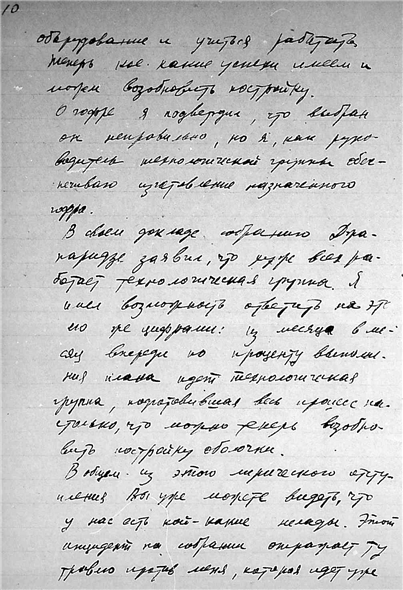 10
оборудование и учиться работать.
Теперь кое-какие успехи имеем и
можем возобновить постройку.
О гофре я подтвердил, что выбран
он неправильно, но я, как руко-
водитель технологической группы обес-
печиваю изготовление назначенного
гофра.
В своем докладе собранию
заявил, что хуже всех ра-
ботает технологическая группа. Я
имел возможность ответить на это
его же цифрами: из месяца в ме-
сяц впереди по проценту выполне-
ния плана идет технологическая
группа, подготовившая весь процесс на-
столько, что можно теперь возобно-
вить постройку оболочки.
В общем из этого лирического отсту-
пления Вы уже можете видеть, что
у нас есть кой-какие нелады. Этот
инцидент на собрании отражает ту
травлю против меня, которая идет уже